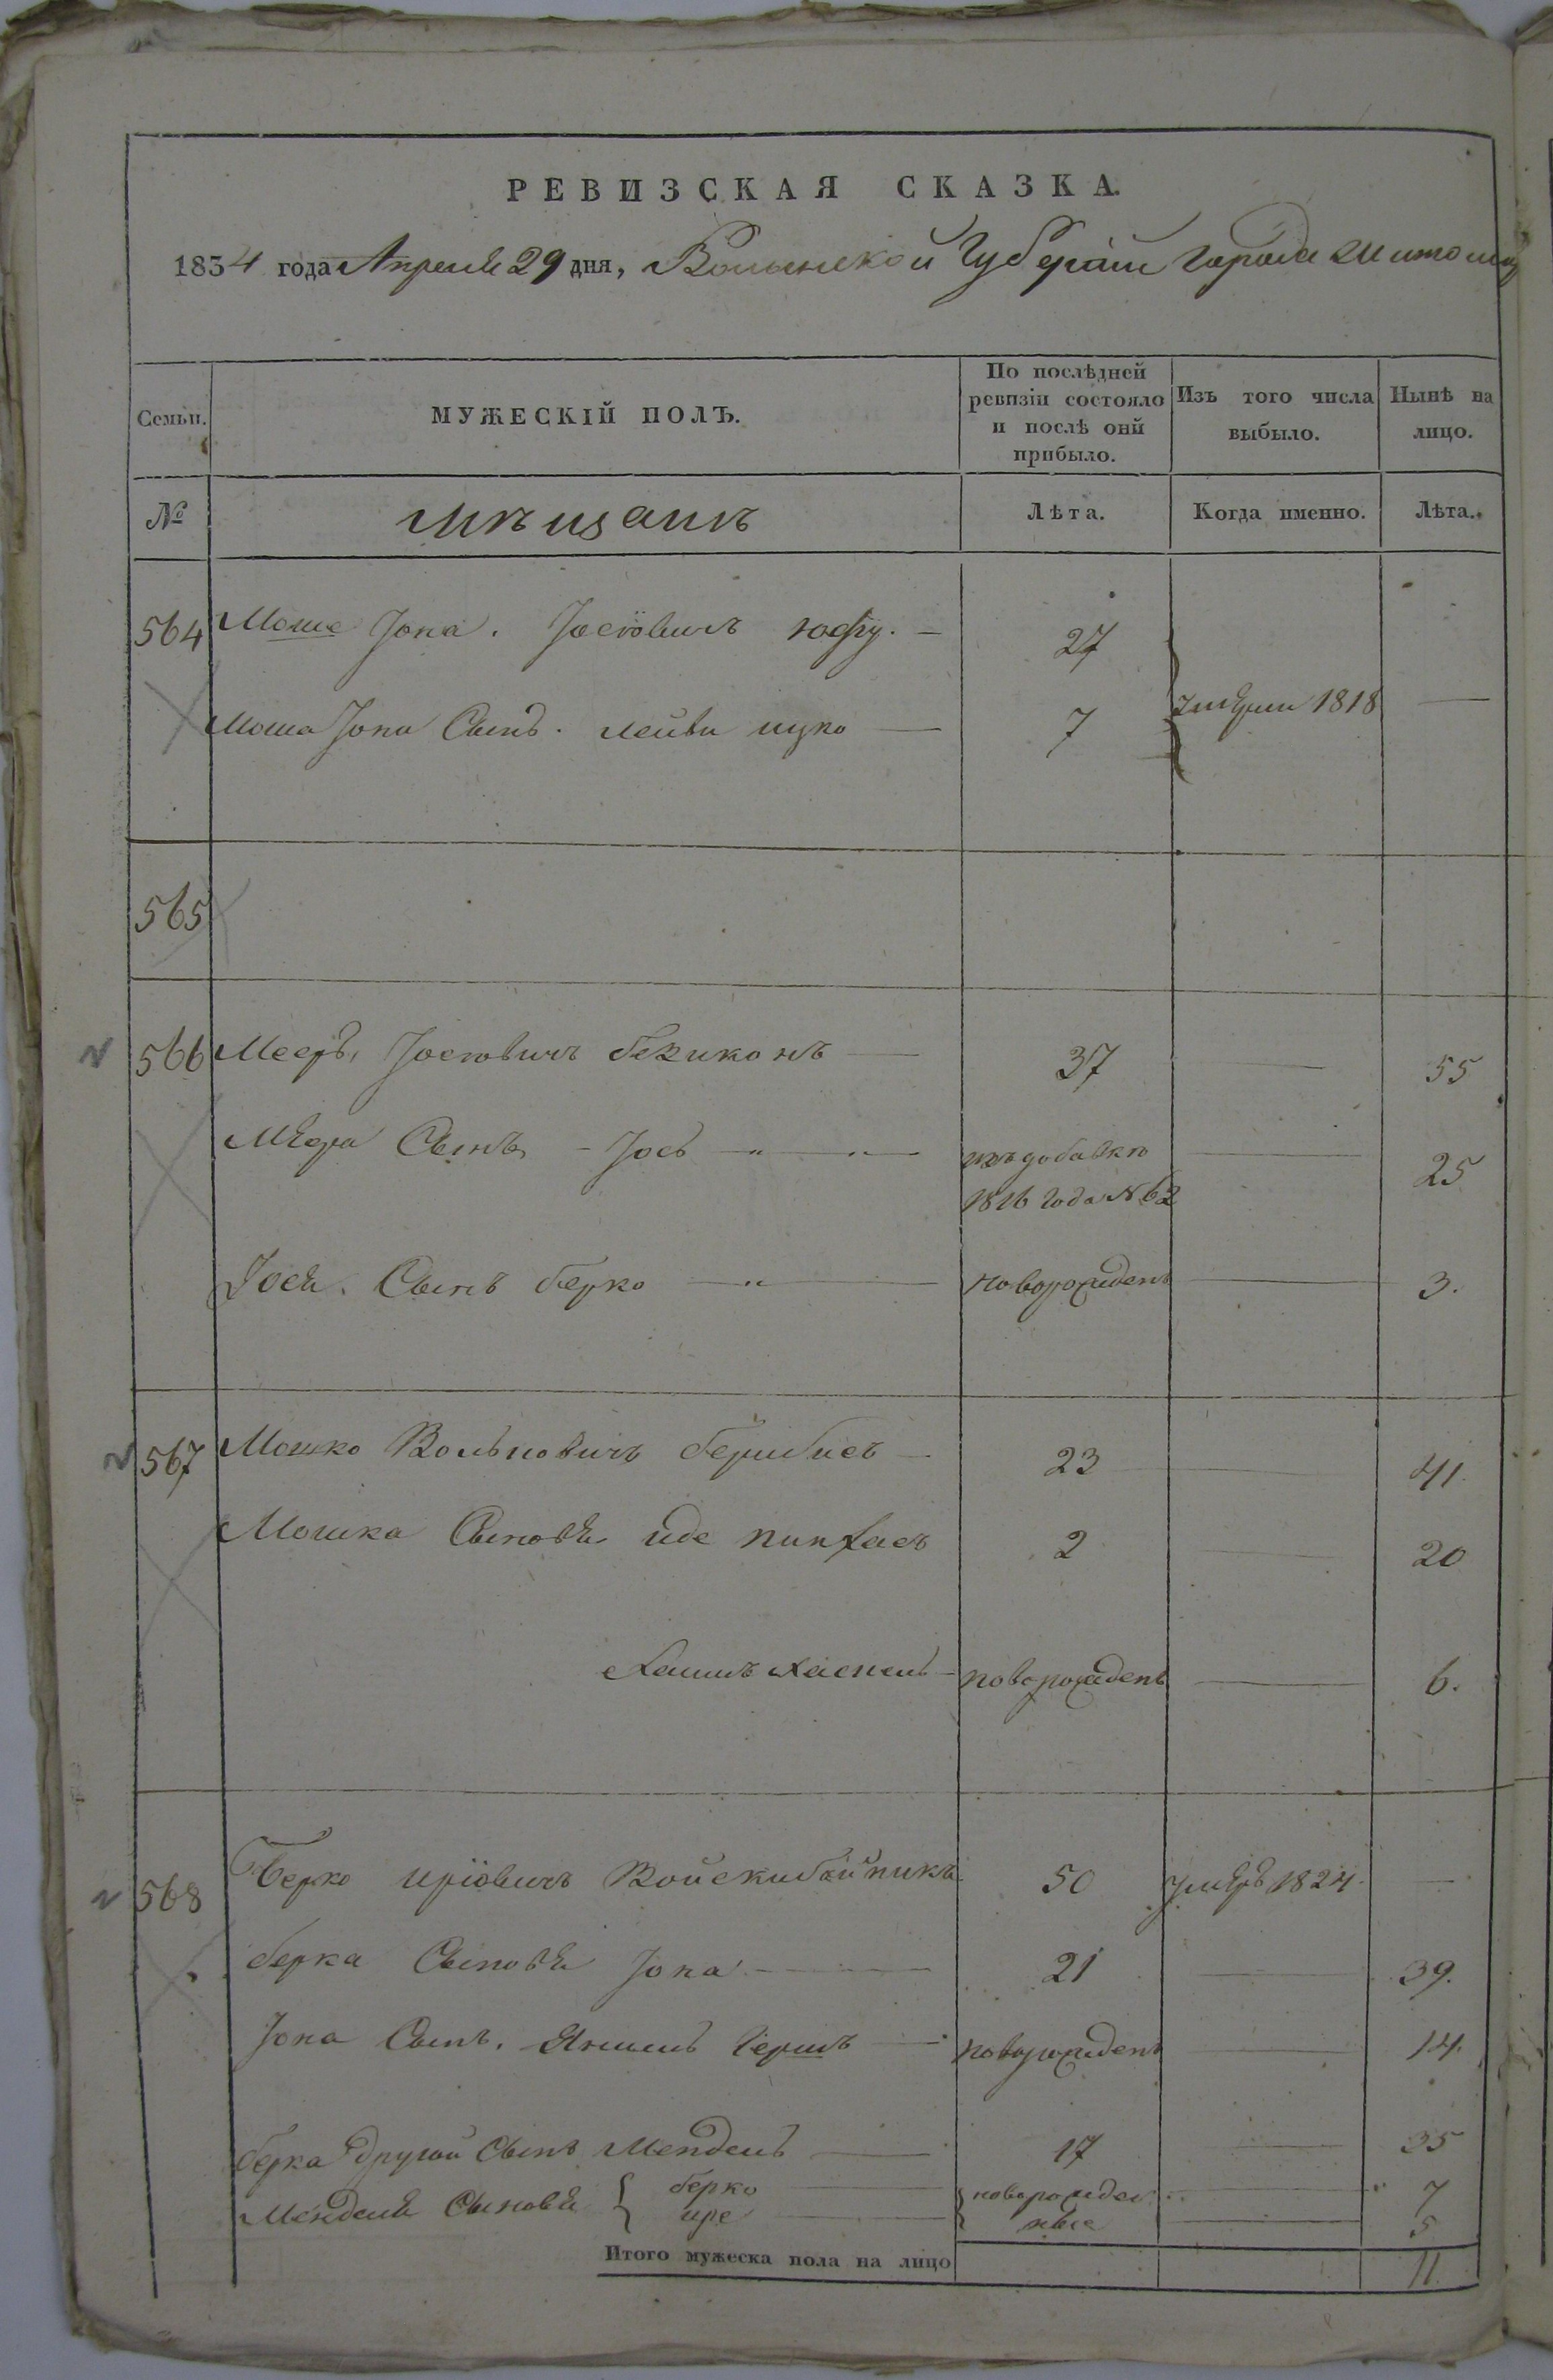 РЕВИЗСКАЯ СКАЗКА.
1834 года Апреля 29 дня, Волынской Губерніи Города Житоми
Семьи.
МУЖЕСКІЙ ПОЛЪ.
По послѣдней ревизіи состояло и послѣ онй прибыло.
Изъ того числа выбыло.
Нынѣ на лицо.
№ мѣщанъ Лѣта. Когда именно. Лѣта.
564 Моше Іона. Іосіовичъ 27
Моша Іона Сынъ. лейви ицко — 7 умерли 1818 —
565
566 Мееръ, Іосіовичъ — 37 — 55
Меера Сынъ - Іось — изъ добавки — 25
1816 года N 62
Іося. Сынъ берко — новорожденъ — 3.
567 Мошко Вольковичъ — 23 — 41.
Мошка Сыновья иде пинхасъ 2 — 20
Хаимъ Хаскель - новорожденъ — 6.
568 Берко иріовичъ 50 умеръ 1824. —
берка Сыновья Іона — 21 — 39.
Іона Сынъ. Янкель Гершъ — новорожденъ — 14.
берка другой Сынъ Мендель — 17 — 35
Менделя Сыновья { берко — } новорожден — 7
ире — ные — 5
Итого мужеска пола на лицо 11